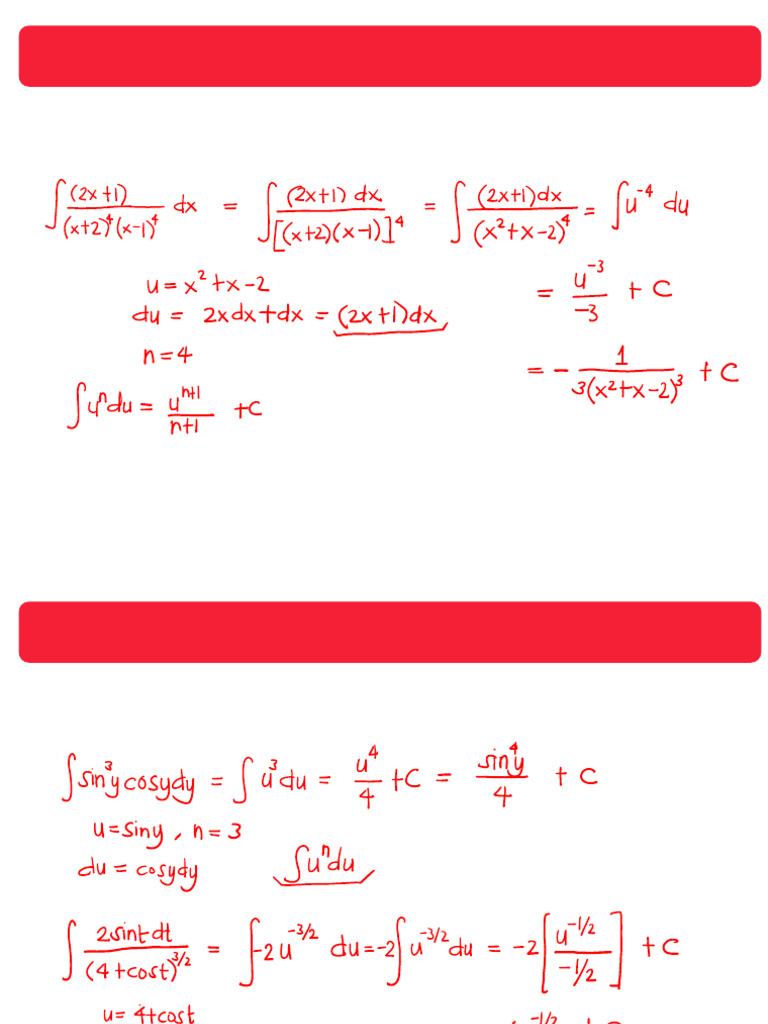 ∫ (2x+1)/((x+2)⁴(x-1)⁴) dx = ∫ (2x+1) dx/[(x+2)(x-1)]⁴ = ∫ (2x+1)dx/(x²+x-2)⁴ = ∫ u⁻⁴ du
u = x²+x-2
= u⁻³/-3 + C
du = 2xdx+dx = (2x+1)dx
n=4
= - 1/(3(x²+x-2)³) + C
∫uⁿdu = uⁿ⁺¹/(n+1) +C
∫sin³y cosydy = ∫ u³du = u⁴/4 +C = sin⁴y/4 + C
u=siny, n=3
du = cosydy ∫uⁿdu
∫ 2sintdt/(4+cost)^(3/2) = ∫-2u^(-3/2) du = -2∫u^(-3/2)du = -2[u^(-1/2)/(-1/2)] + C
u= 4+cost